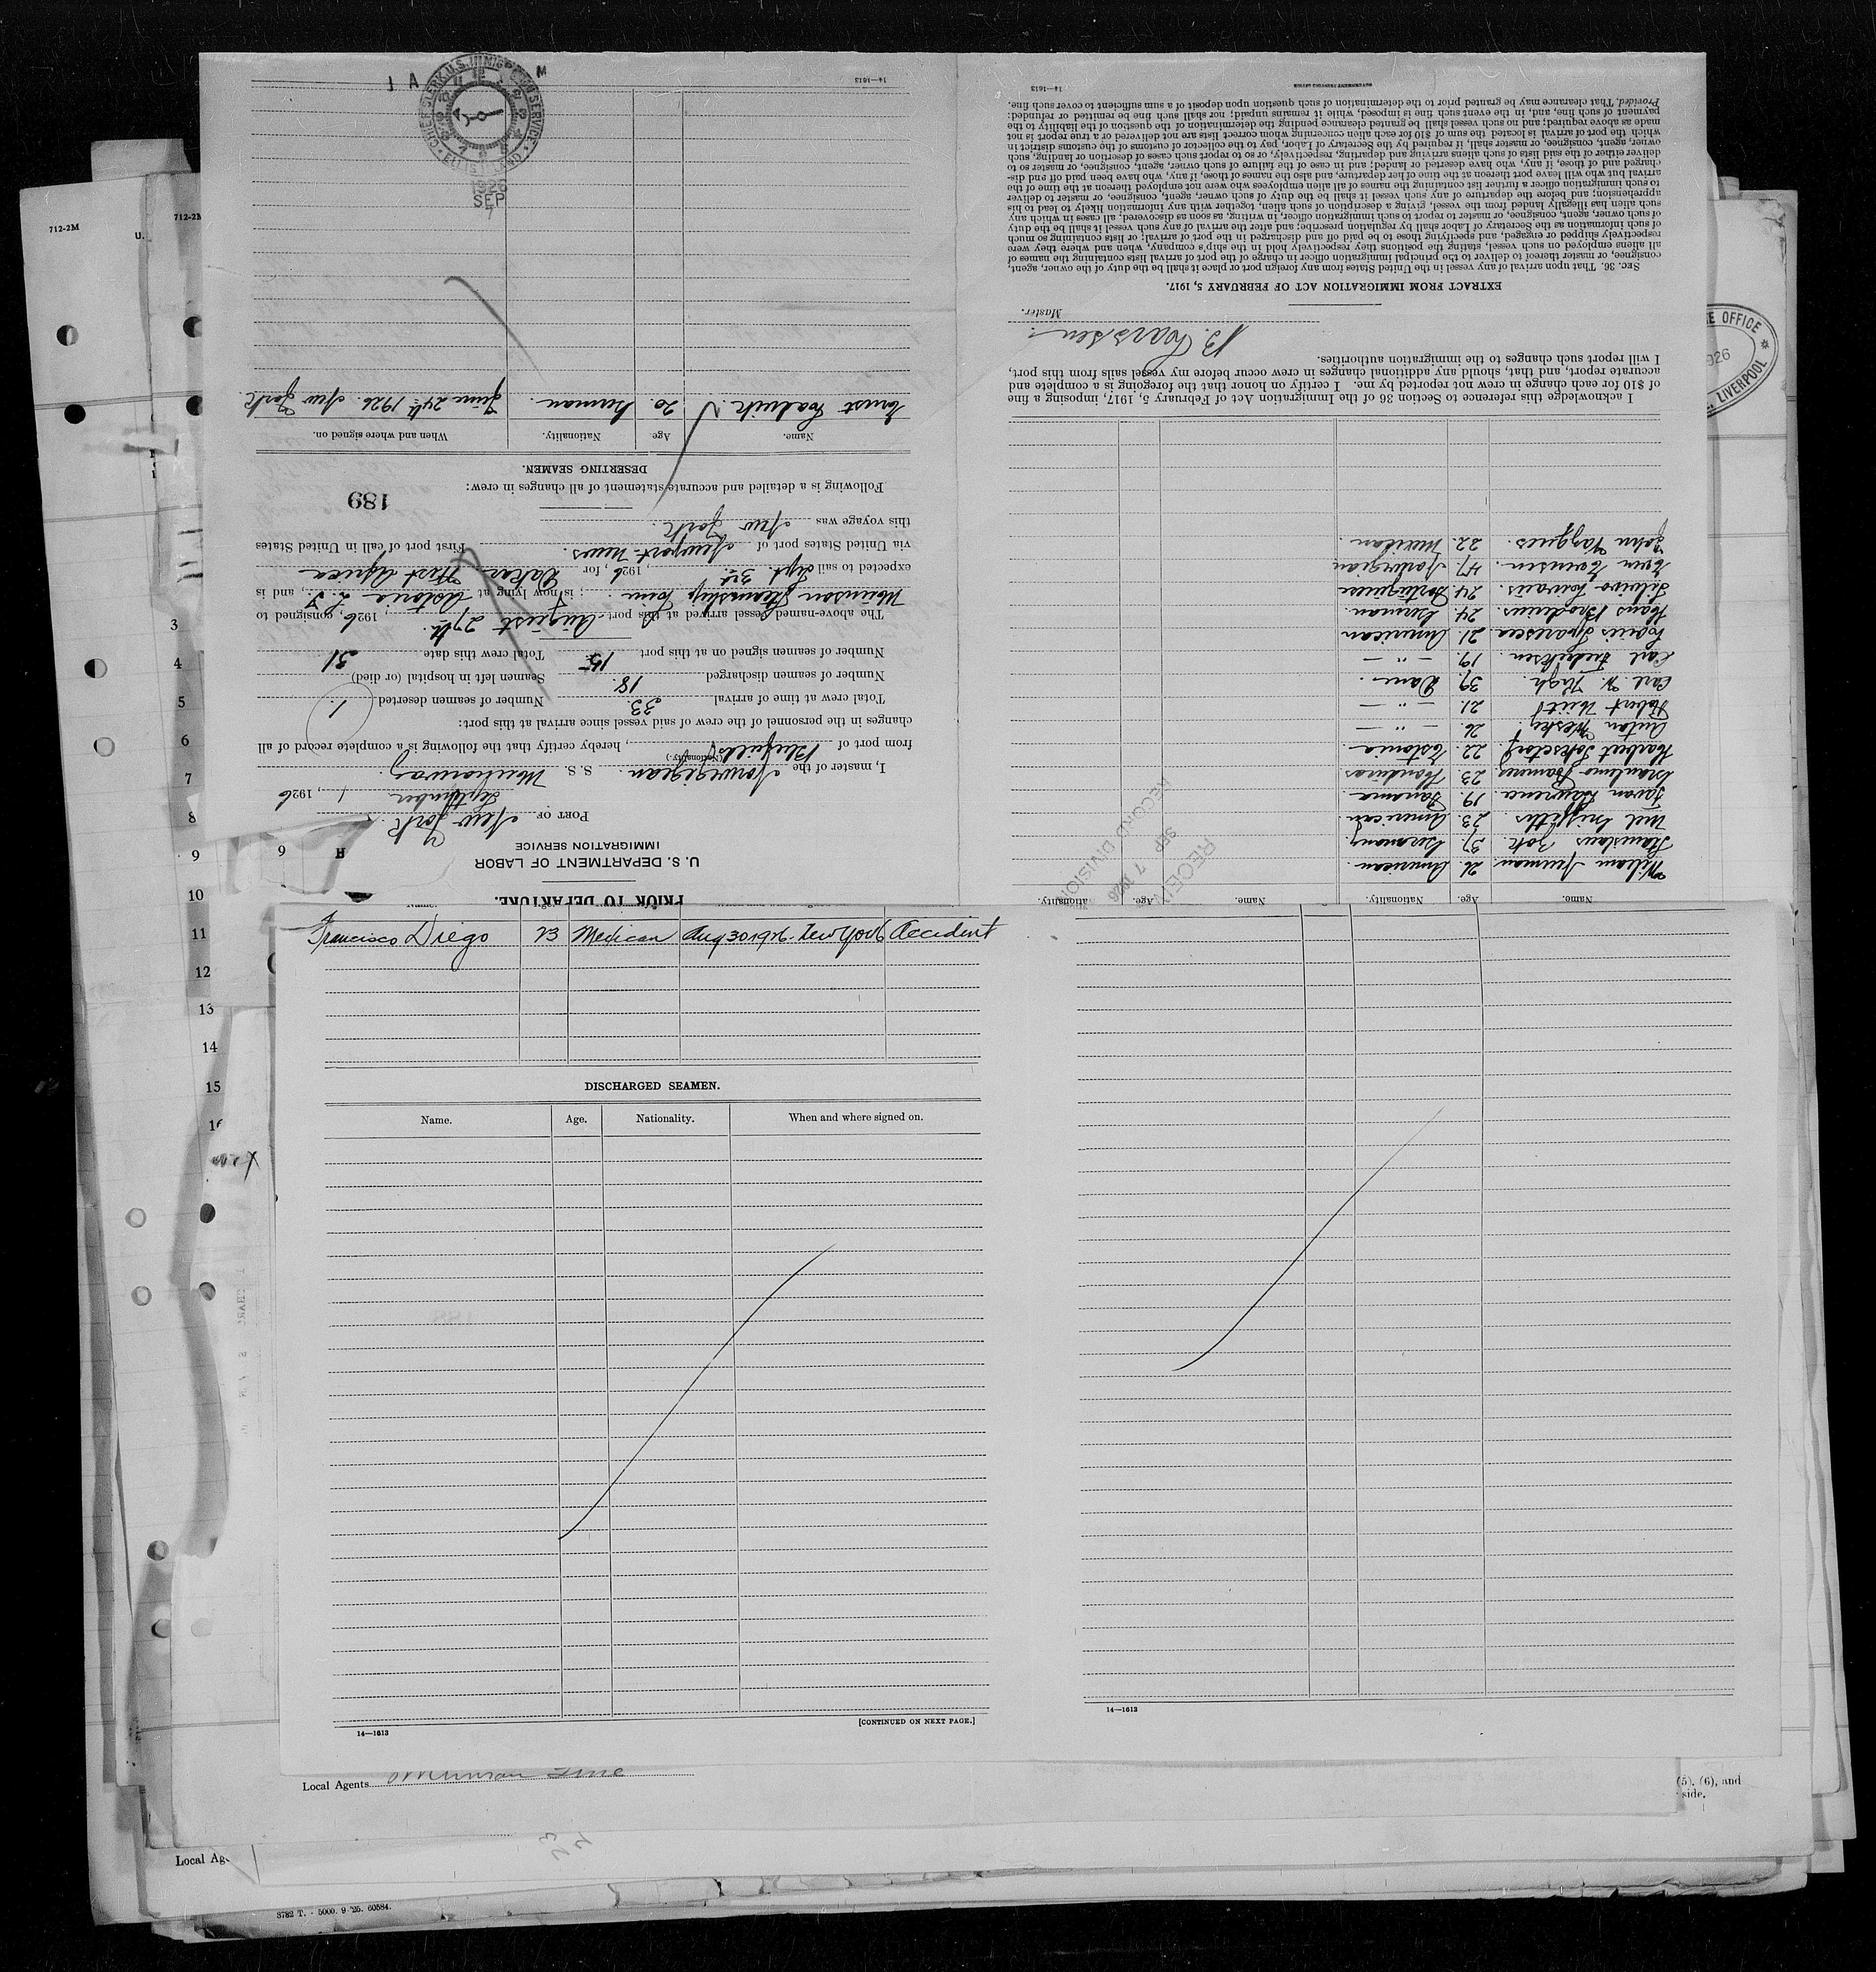 PRIOR TO DEPARTURE.
U. S. DEPARTMENT OF LABOR
IMMIGRATION SERVICE
PORT OF New York
September 1, 1926
I, master of the Norwegian S. S. Munsomway
(Nationality.)
from port of Bluefields, hereby certify that the following is a complete record of all
changes in the personnel of the crew of said vessel since arrival at this port:
Total crew at time of arrival 33. Number of seamen deserted 1.
Number of seamen discharged 18. Seamen left in hospital (or died)
Number of seamen signed on at this port 15. Total crew this date 31
The above-named vessel arrived at this port August 27th, 1926, consigned to
Munson Steamship Line; is now lying at Astoria L. I, and is
expected to sail Sept. 3rd, 1926, for Dakar West Africa
via United States port of Newport-News. First port of call in United States
this voyage was New York.
189
Following is a detailed and accurate statement of all changes in crew:
DESERTING SEAMEN.
Name. Age Nationality. When and where signed on.
20. German June 24th 1926. New York.
14—1613
CHIEF CLERK U.S. IMMIGRATION SERVICE
1926
SEP
7
Name. Age. Nationality. Name. Age. Nationality.
William Neuman 26 American
Stanislaus 37 Germany
23. American
Lawrence 19. Panama
23. Honduras
22. Estonia
Anton 26 — " —
Robert 21. — " —
Carl W. Hagh. 39. Dane
Carl Fredriksen. 19. — " —
Louis 21 American
Hans Brodius. 24. German
24 Portuguese
Even Evensen. 47 Norwegian
John 22. Mexican.
RECEIVED
SEP 7 1926
RECORD DIVISION
I acknowledge this reference to Section 36 of the Immigration Act of February 5, 1917, imposing a fine
of $10 for each change in crew not reported by me. I certify on honor that the foregoing is a complete and
accurate report, and that, should any additional changes in crew occur before my vessel sails from this port,
I will report such changes to the immigration authorities.
Master.
EXTRACT FROM IMMIGRATION ACT OF FEBRUARY 5, 1917.
SEC. 36. That upon arrival of any vessel in the United States from any foreign port or place it shall be the duty of the owner, agent,
consignee, or master thereof to deliver to the principal immigration officer in charge of the port of arrival lists containing the names of
all aliens employed on such vessel, stating the positions they respectively hold in the ship's company, when and where they were
respectively shipped or engaged, and specifying those to be paid off and discharged in the port of arrival; or lists containing so much
of such information as the Secretary of Labor shall by regulation prescribe; and after the arrival of any such vessel it shall be the duty
of such owner, agent, consignee, or master to report to such immigration officer, in writing, as soon as discovered, all cases in which any
such alien has illegally landed from the vessel, giving a description of such alien, together with any information likely to lead to his
apprehension; and before the departure of any such vessel it shall be the duty of such owner, agent, consignee, or master to deliver
to such immigration officer a further list containing the names of all alien employees who were not employed thereon at the time of the
arrival but who will leave port thereon at the time of her departure, and also the names of those, if any, who have been paid off and dis-
charged and of those, if any, who have deserted or landed; and in case of the failure of such owner, agent, consignee, or master so to
deliver either of the said lists of such aliens arriving and departing, respectively, or so to report such cases of desertion or landing, such
owner, agent, consignee, or master shall, if required by the Secretary of Labor, pay to the collector of customs of the customs district in
which the port of arrival is located the sum of $10 for each alien concerning whom correct lists are not delivered or a true report is not
made as above required; and no such vessel shall be granted clearance pending the determination of the question of the liability to the
payment of such fine, and, in the event such fine is imposed, while it remains unpaid; nor shall such fine be remitted or refunded:
Provided, That clearance may be granted prior to the determination of such question upon deposit of a sum sufficient to cover such fine.
14—1613
GOVERNMENT PRINTING OFFICE
Francisco Diego 23 Mexican Aug 30 1926 - New York Accident
DISCHARGED SEAMEN.
Name. Age. Nationality. When and where signed on.
14—1613
[CONTINUED ON NEXT PAGE.]
14—1613
Local Agents Munson Line
(5), (6), and
side.
Local Ag
3782 T. - 5000. 9-'25. 60584.
712-2M
712-2M
U.
3
4
5
6
7
8
9
10
11
12
13
14
15
6
H
E OFFICE
926
LIVERPOOL